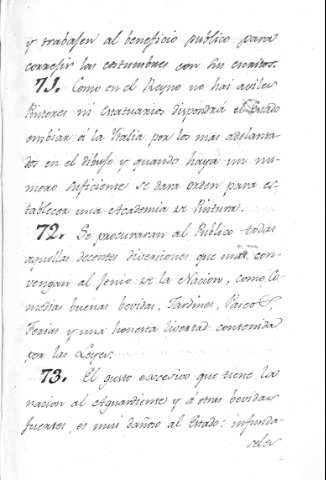 y trabajen al beneficio publico para
corregir las costumbres con sus
71. Como en el Reyno no hai aviles
Pintores ni Estatuarios dispondrá el Estado
embiar á la Italia por los mas adelanta
dos en el dibujo y quando haya un nu
mero suficiente se dara orden para es
tablecer una Academia de Pintura.
72. Se procuraran al Publico todas
aquellas decentes diversiones que mas con
vengan al Jenio de la Nacion, como Co
medias buenas bevidas, Jardines, Paseos,
Ferias y una honesta livertad contenida
por las Leyes.
73. El gusto excesivo que tiene la
nacion al Aguardiente y á otras bevidas
fuertes, es mui dañoso al Estado: infunda
sele